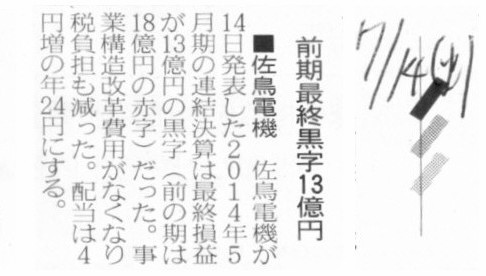 前期最終黒字13億円
■佐鳥電機　佐鳥電機が
14日発表した2014年5
月期の連結決算は最終損益
が13億円の黒字（前の期は
18億円の赤字）だった。事
業構造改革費用がなくなり
税負担も減った。配当は4
円増の年24円にする。